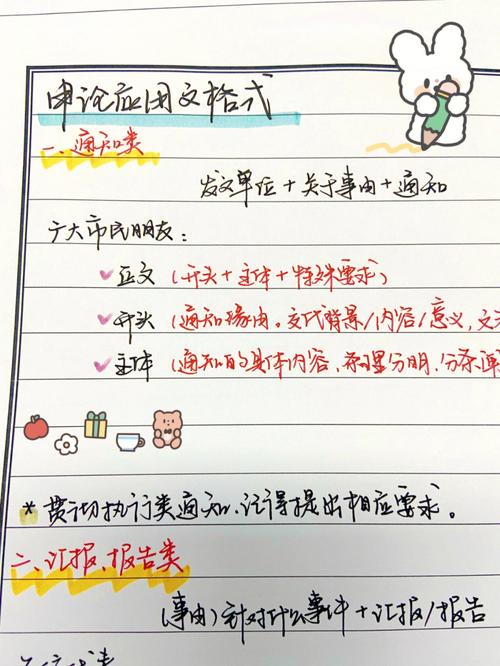 申论应用文格式
一、通知类
发文单位+关于事由+通知
广大市民朋友：
正文(开头+主体+特殊要求)
开头(通知缘由。交代背景/内容/意义,文
主体(通知的具体内容,条理分明,分条
*贯彻执行类通知,记得提出相应要求。
二、汇报、报告类
(事由)针对什么事件+汇报/报告